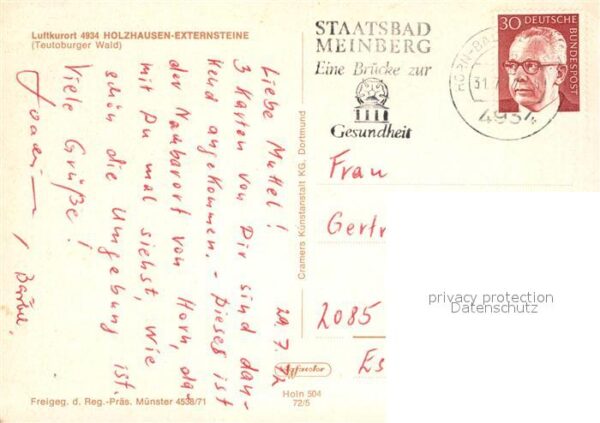 Luftkurort 4934 HOLZHAUSEN-EXTERNSTEINE
(Teutoburger Wald)
29.7.72
Liebe Muttel!
3 Karten von Dir sind dan-
kend angekommen. - Dieses ist
der Nachbarort von Horn, da-
mit Du mal siehst, wie
schön die Umgebung ist.
Viele Grüße!
Freigeg. d. Reg.-Präs. Münster 4538/71
Cramers Kunstanstalt KG, Dortmund
Holn 504
72/5
STAATSBAD
MEINBERG
Eine Brücke zur
Gesundheit
31.7
4934
30 DEUTSCHE
BUNDESPOST
Frau
Gertr
2085
Es
privacy protection
Datenschutz